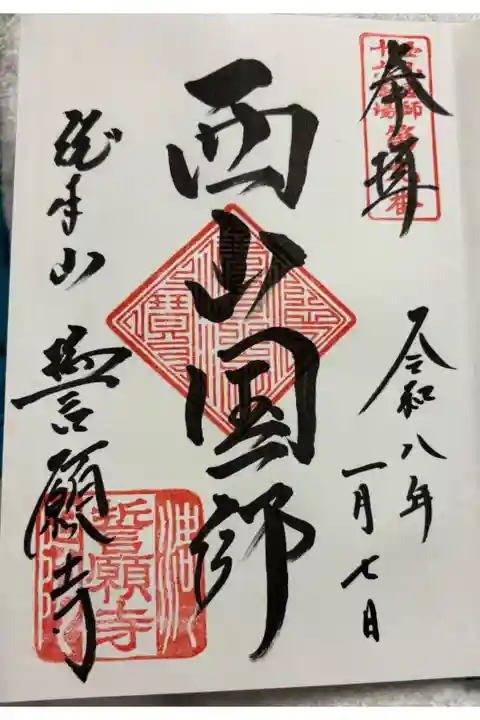 奉拝
令和八年
一月七日
西山国師
総本山 誓願寺
誓願寺